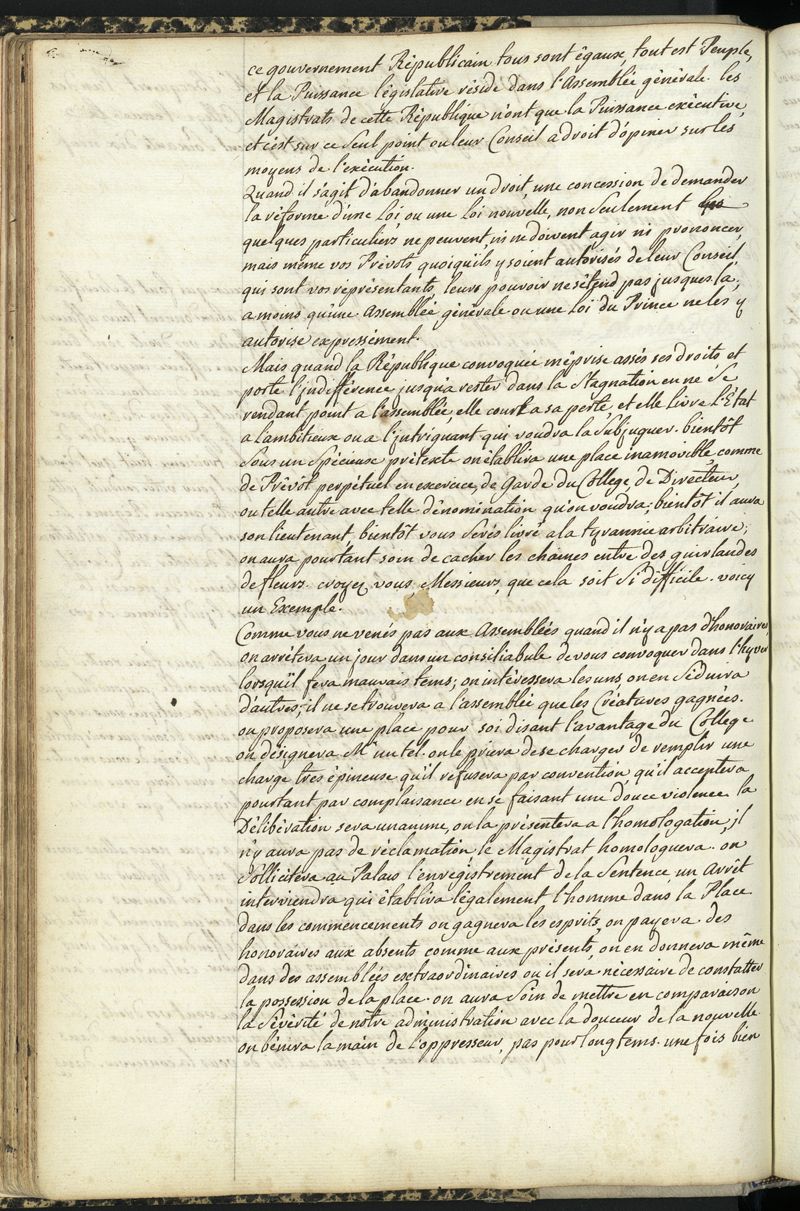 ce gouvernement Républicain tous sont égaux, tout est Peuple,
et la Puissance législative réside dans l'Assemblée générale. les
Magistrats de cette République n'ont que la Puissance exécutive,
et c'est sur ce seul point ou leur Conseil a droit d'opiner sur les
moyens de l'exécution.
Quand il s'agit d'abandonner un droit, une concession de demander
la réforme d'une Loi, ou une Loi nouvelle, non seulement
quelques particuliers ne peuvent, ni ne doivent agir ni prononcer,
mais même vos Prévots quoiqu'ils y soient autorisés de leur Conseil,
qui sont vos représentants, leurs pouvoir ne s'étend pas jusques la,
a moins qu'une Assemblée générale ou une Loi du Prince ne les y
autorise expressément.
Mais quand la République convoquée méprise assés ses droits et
porte l'indifférence jusqu'a rester dans la Stagnation en ne se
rendant point a l'assemblée, elle court a sa perte, et elle livre l'État
a l'ambitieux ou a l'intriguant qui voudra la subjuguer. bientôt
sous un spécieux prétexte on établira une place inamovible, comme
de Prévôt perpétuel en exercice, de Garde du College, de Directeur,
ou telle autre avec telle dénomination qu'on voudra; bientôt il aura
son lieutenant, bientôt vous serés livré a la tyrannie arbitraire;
on aura pourtant soin de cacher les chaines entre des guirlandes
de fleurs. croyez vous Messieurs, que cela soit si difficile. voicy
un Exemple.
Comme vous ne venés pas aux Assemblées quand il n'y a pas d'honoraires,
on arrêtera un jour dans un consiliabule de vous convoquer dans l'hyver
lorsqu'il fera mauvais tems; on intéressera les uns, on en séduira
d'autres, il ne se trouvera a l'assemblée que les Créatures gagnées.
on proposera une place pour, soi disant l'avantage du College
on désignera Mr un tel. on le priera de se charger de remplir une
charge très épineuse qu'il refusera par convention, qu'il acceptera
pourtant par complaisance en se faisant une douce violence. la
Délibération sera unanime, on la présentera a l'homologation, il
n'y aura pas de réclamation, le Magistrat homologuera. on
sollicitera au Palais l'enregistrement de la Sentence un Arrêt
interviendra qui établira légalement l'homme dans la Place.
dans les commencements on gagnera les esprits, on payera des
honoraires aux absents comme aux présents, on en donnera même
dans des assemblées extraordinaires ou il sera nécessaire de constatter
la possession de la place. on aura soin de mettre en comparaison
la sévérité de notre administration avec la douceur de la nouvelle.
on bénira la main de l'oppresseur, pas pour longtems. une fois bien